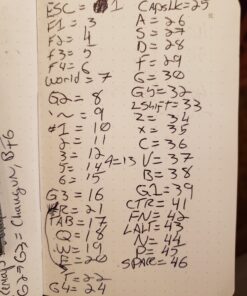 ESC = 1
F1 = 3
F2 = 4
F3 = 5
F4 = 6
World = 7
G2 = 8
`~ = 9
#1 = 10
2 = 11
3 = 12
4 = 13
5 = 14
6 = 15
G3 = 16
R = 21
TAB = 17
Q = 18
W = 19
E = 20
T = 22
G4 = 24
CapsLK = 25
A = 26
S = 27
D = 28
F = 29
G = 30
G5 = 32
LShift = 33
Z = 34
X = 35
C = 36
V = 37
B = 38
G1 = 39
CTR = 41
FN = 42
LALT = 43
N = 44
SPACE = 46